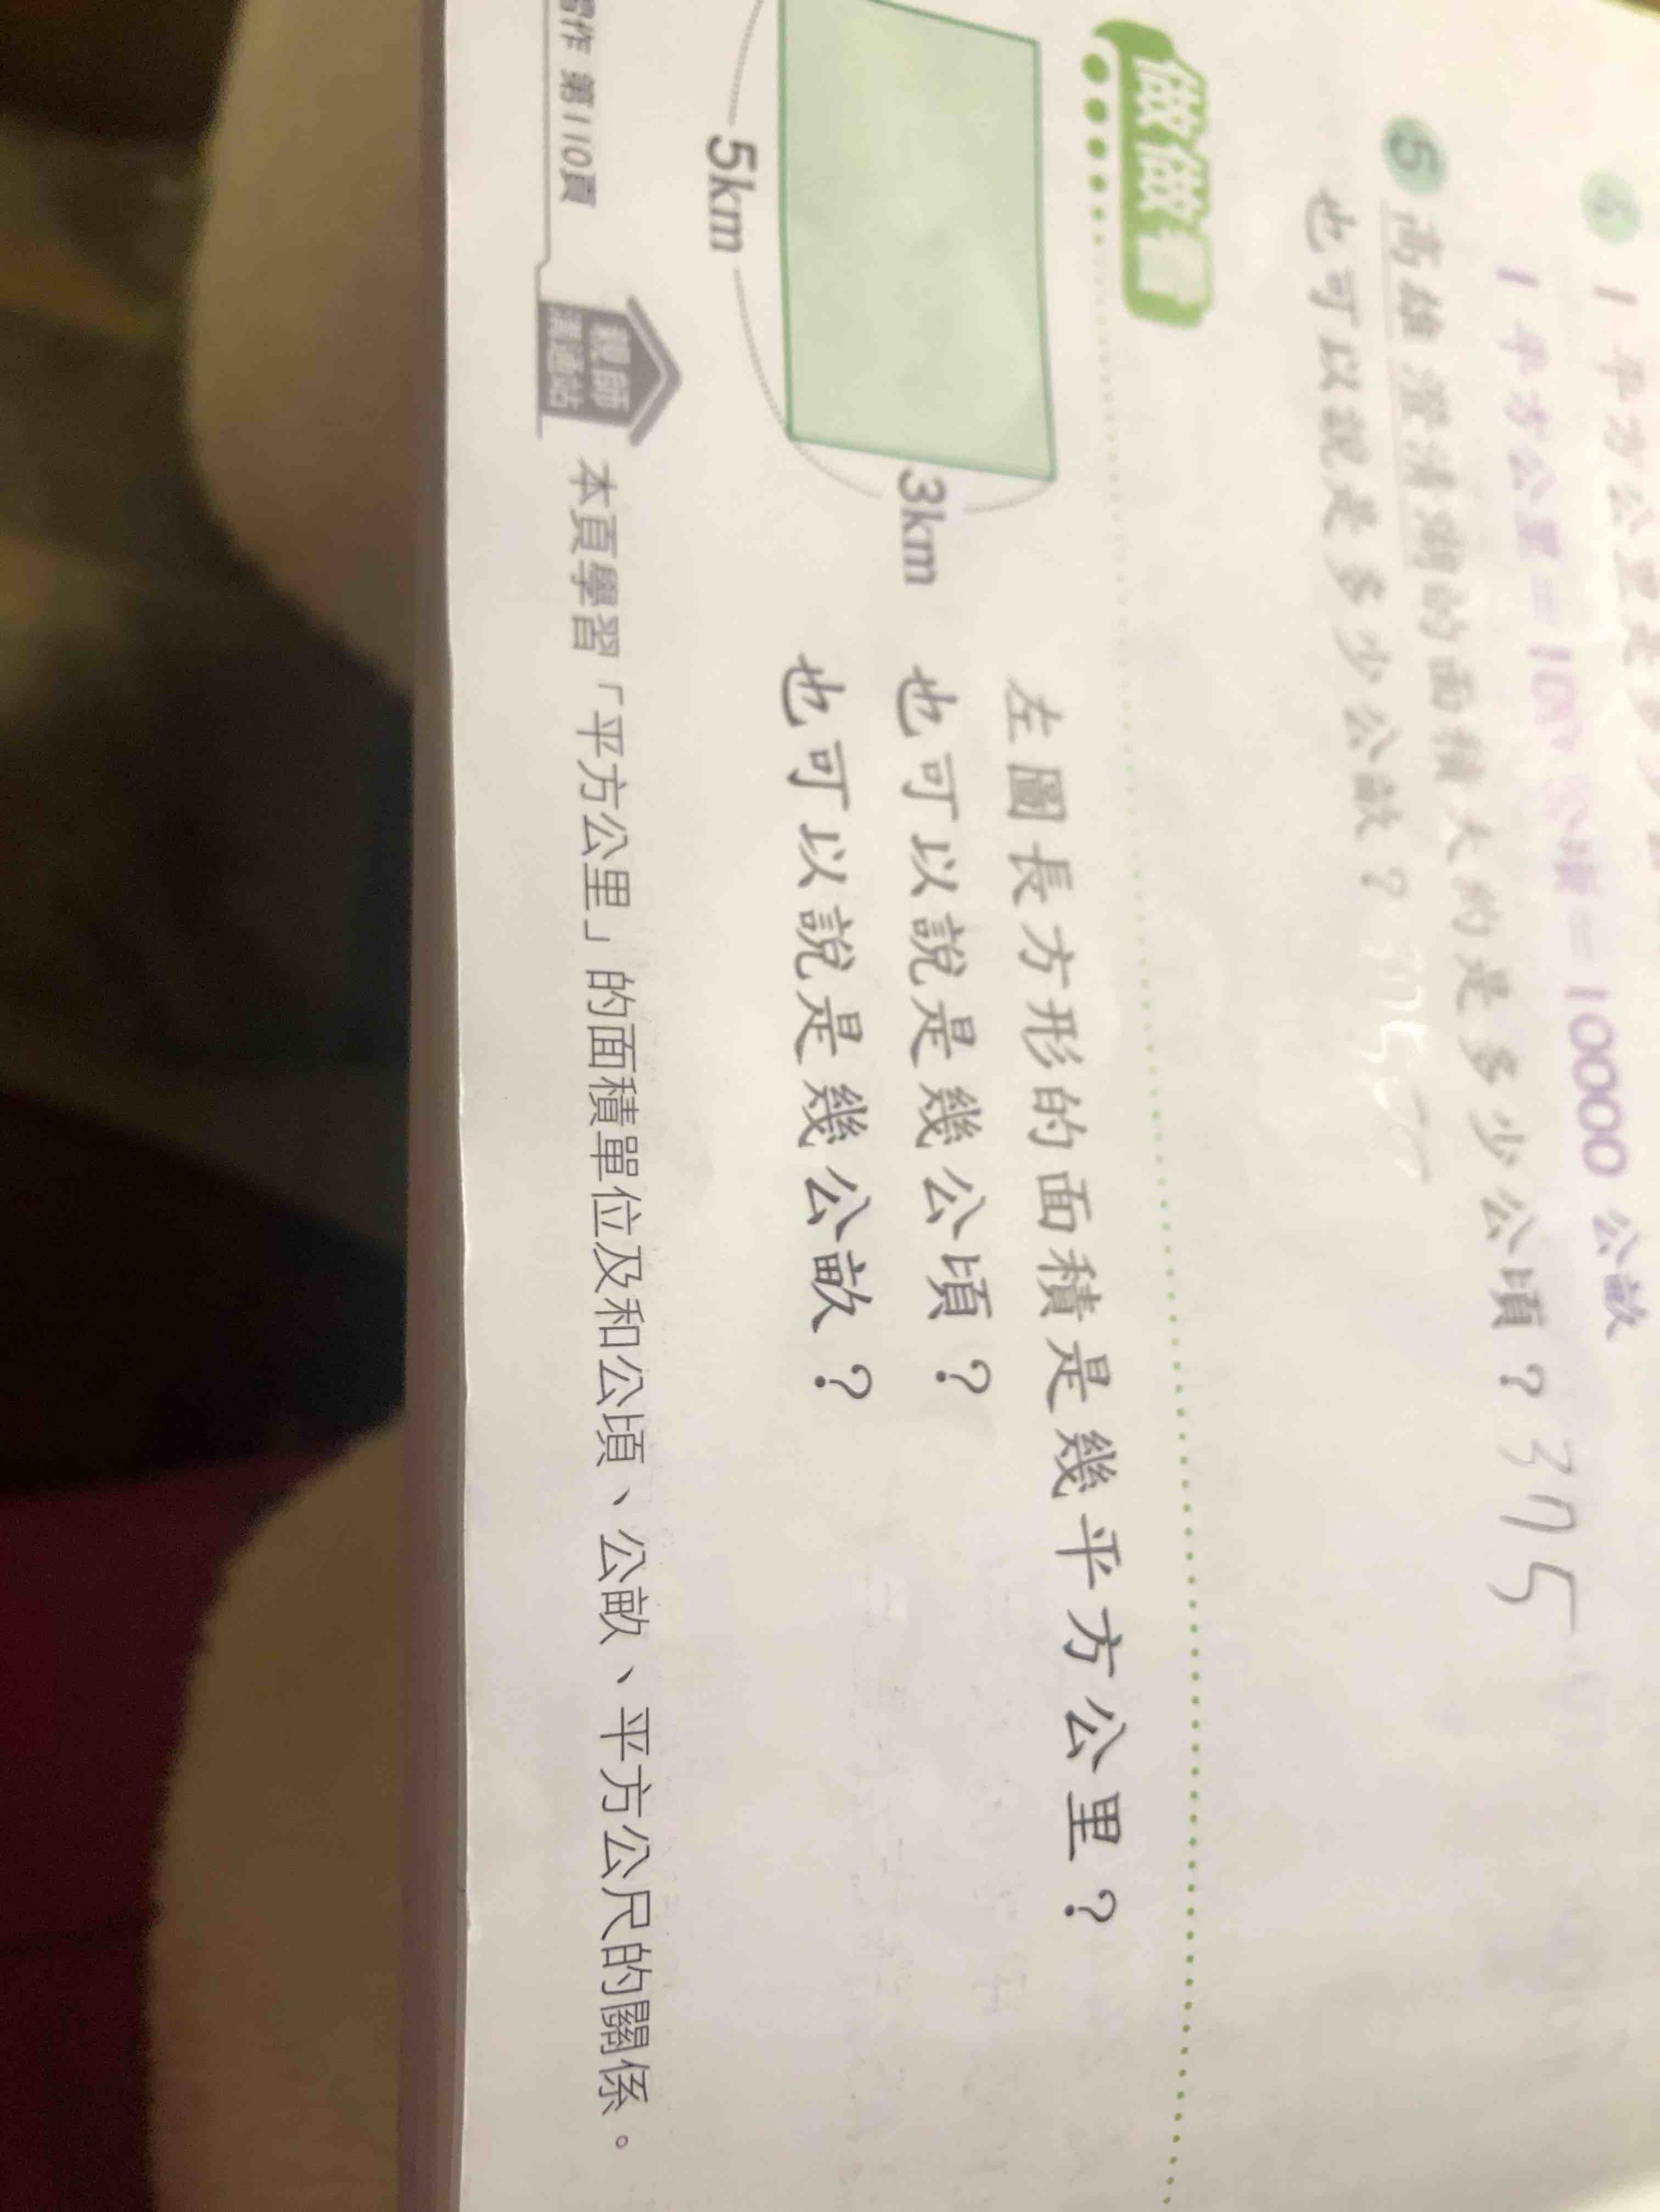 1 平方公里是多少公
1 平方公里=100 公頃=10000 公畝
5 高雄澄清湖的面積大約是多少公頃？375
也可以說是多少公畝？
做做看
5km
3km
左圖長方形的面積是幾平方公里？
也可以說是幾公頃？
也可以說是幾公畝？
習作 第110頁
親師溝通站
本頁學習「平方公里」的面積單位及和公頃、公畝、平方公尺的關係。